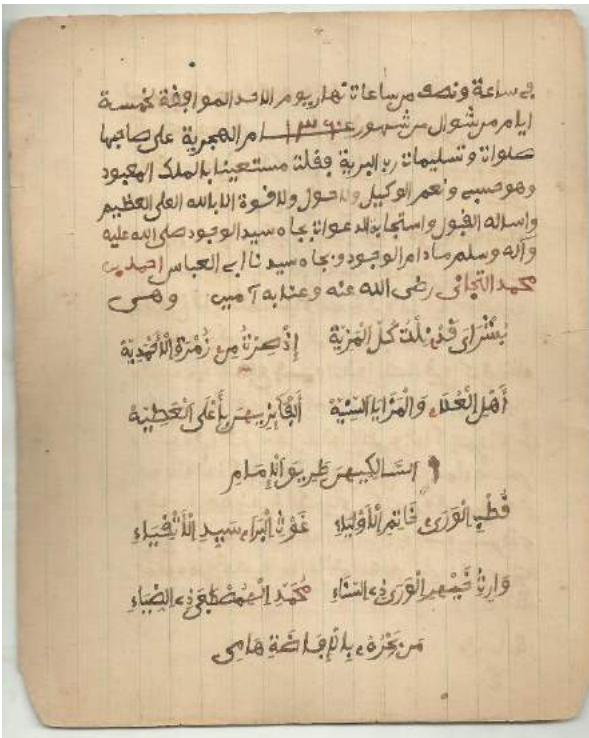 في ساعة ونصف من ساعات نهار يوم الاحد الموافقة لخمسة
ايام من شوال من شهور عام ١٣٦٠ الهجرية على صاحبها
صلوات وتسليمات رب البرية فقلت مستعينا بالملك المعبود
وهو حسبي ونعم الوكيل ولا حول ولا قوة الا بالله العلي العظيم
واساله القبول واستجابة الدعوات بجاه سيد الوجود صلى الله عليه
وآله وسلم مادام الوجود وبجاه سيدنا ابي العباس احمد بن
محمد التجاني رضى الله عنه وعنا به آمين وهي
بُشْرَايَ قَدْ نِلْتُ كُلَّ الْمَزِيَّة إِذْ صِرْتُ مِن زُمْرَةِ الْأَحْمَدِيَّة
أَهْلِ الْعُلَاءِ وَالْمَزَايَا السَّنِيَّة الْفَائِزِينَ بِأَعْلَى الْعَطِيَّة
السَّالِكِينَ طَرِيقَ الْإِمَامِ
قُطْبِ الْوَرَى خَاتِمِ الْأَوْلِيَاءِ غَوْثِ الْبَرَايَا سَيِّدِ الْأَتْقِيَاءِ
وَارِثِ خَيْرِ الْوَرَى ذِي السَّنَاءِ مُحَمَّدِ الْمُصْطَفَى ذِي الضِّيَاءِ
مَن بَحْرُهُ بِالْإِفَاضَةِ هَامِى